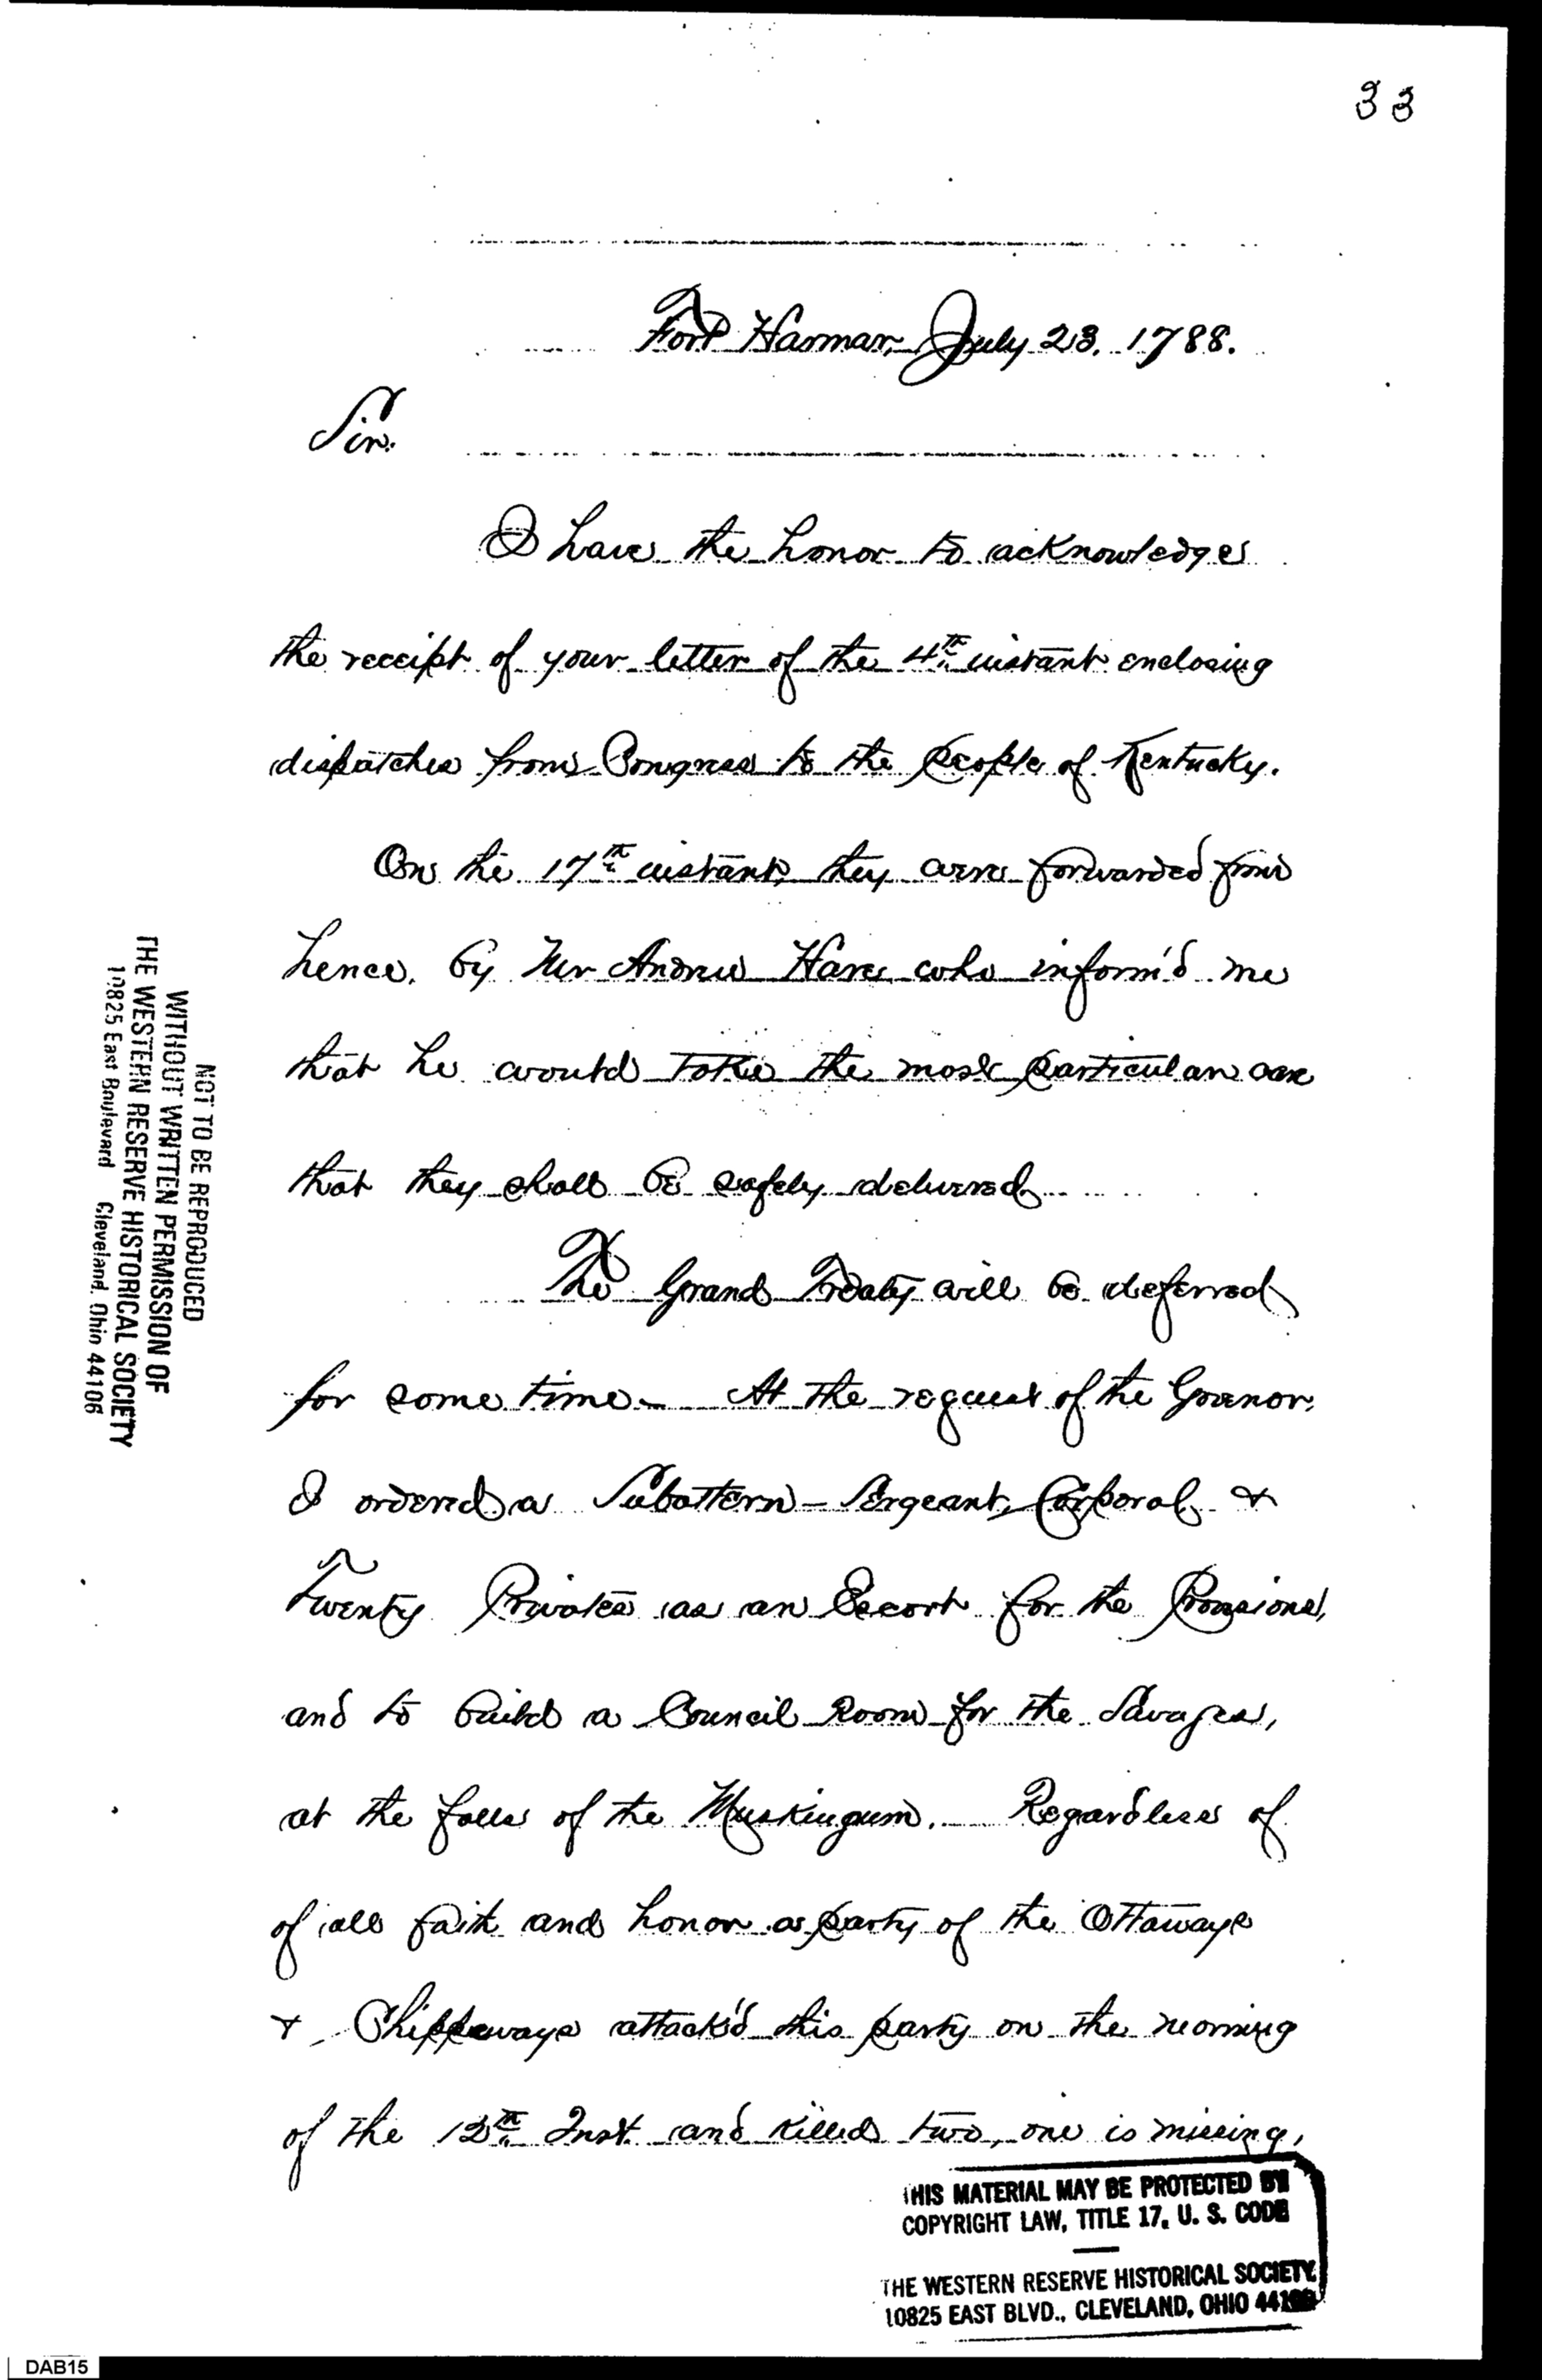 33
Fort Harmar, July 23. 1788.
Sir.
I have the honor to acknowledge
the receipt of your letter of the 4th instant enclosing
dispatches from Congress to the people of Kentucky.
On the 17th instant, they were forwarded from
hence. by Mr Andrew Hare who inform'd me
that he would take the most particular care
that they shall be safely delivered
The Grand Treaty will be deferred
for some time — At the request of the Govenor,
I ordered a Subaltern — Sergeant, Corporal &
Twenty Privates as an Escort for the Provisions,
and to build a Council Room for the Savages,
at the falls of the Muskingum. — Regardless of
of all faith and honor a party of the Ottaways
& Chippeways attack'd this party on the morning
of the 13th Inst. and killed two, one is missing,
NOT TO BE REPRODUCED
WITHOUT WRITTEN PERMISSION OF
THE WESTERN RESERVE HISTORICAL SOCIETY
10825 East Boulevard Cleveland, Ohio 44106
THIS MATERIAL MAY BE PROTECTED BY
COPYRIGHT LAW, TITLE 17, U. S. CODE
THE WESTERN RESERVE HISTORICAL SOCIETY
10825 EAST BLVD., CLEVELAND, OHIO 44106
DAB15